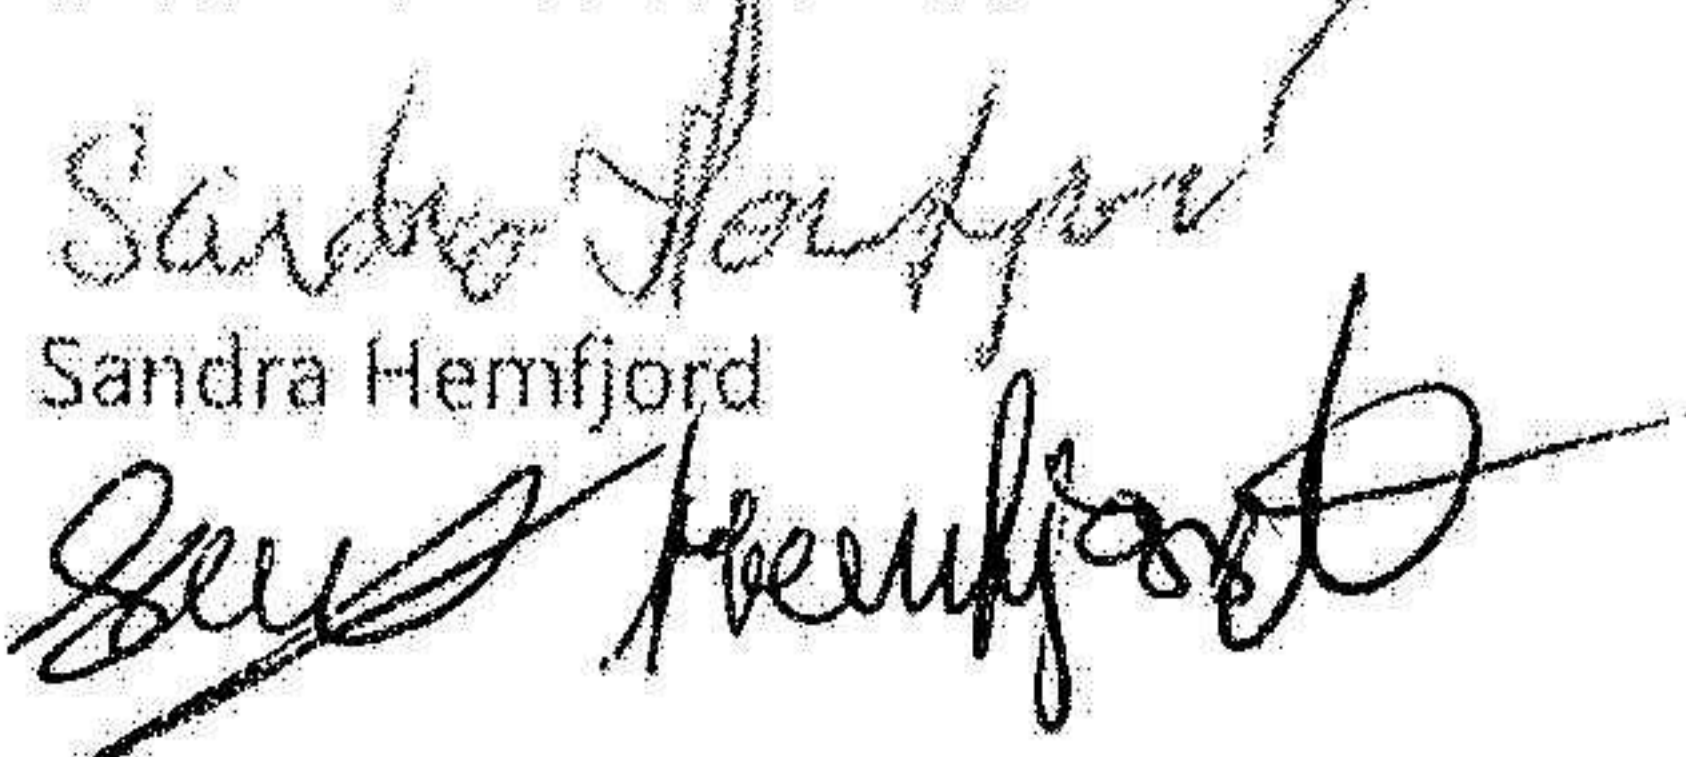 Sandra Hemfjord
Sandra Hemfjord
Hemfjord